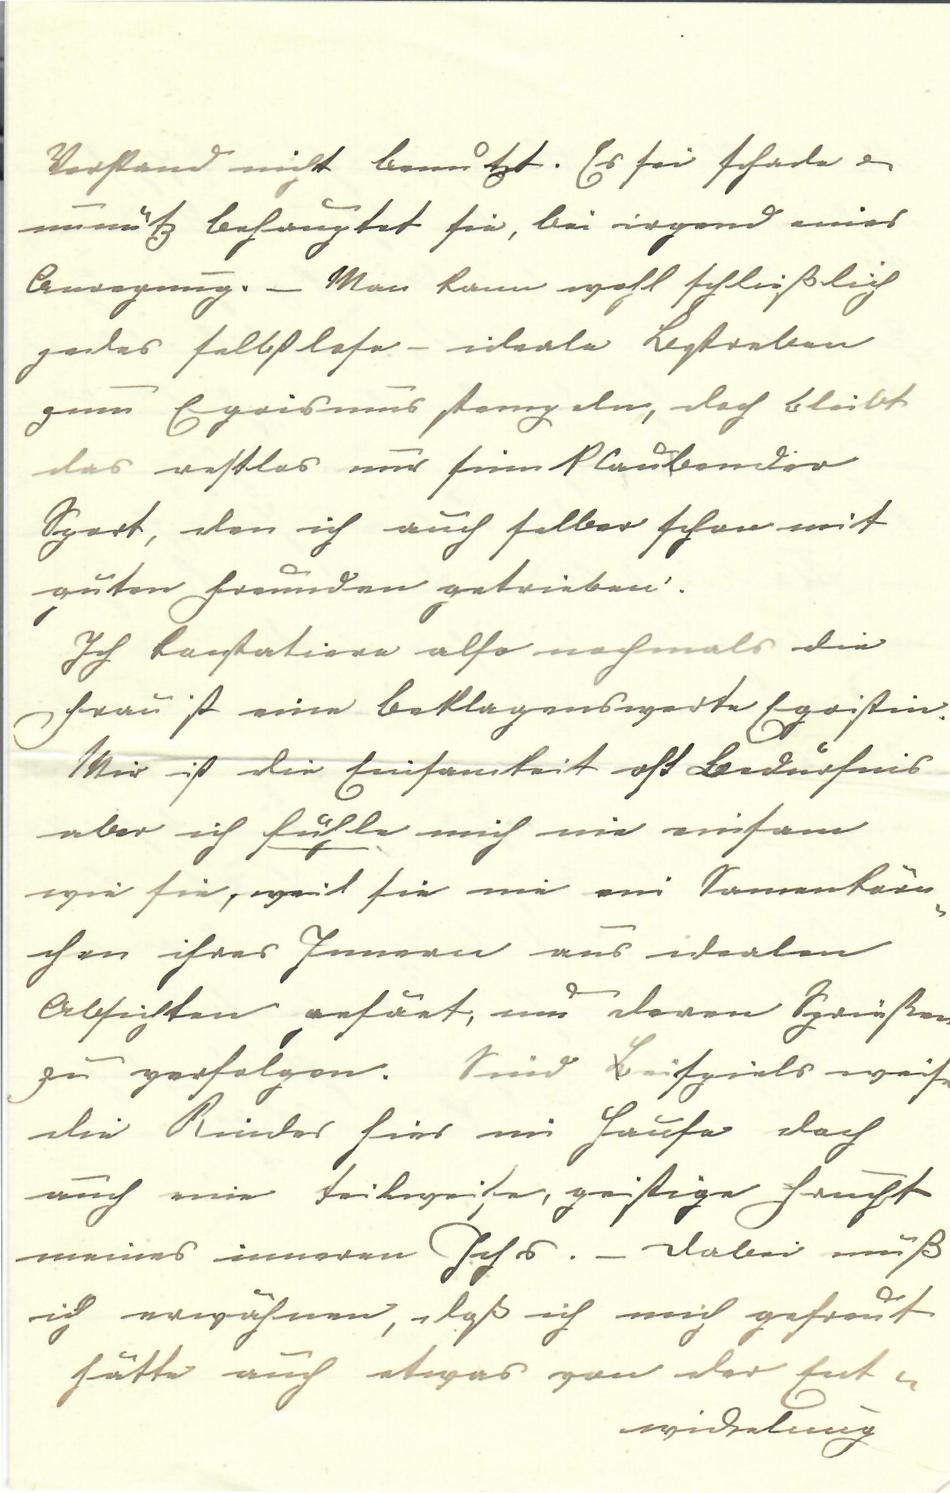 Verstand nicht benutzt. Es sei schade &
unnütz behauptet sie, bei irgend einer
Anregung. – Man kann wohl schließlich
jedes selbstlose – ideale Bestreben
zum Egoismus stempeln, doch bleibt
das restlos nur
Sport, den ich auch selber schon mit
guten Freunden getrieben'.
Ich konstatiere also nochmals die
Frau ist eine beklagenswerte Egoistin.
Mir ist die Einsamkeit oft Bedürfnis
aber ich fühle mich nie einsam
wie sie, weil sie nie ein Samenkörn„
chen ihres Innern aus idealen
Absichten gesäet, um deren Sprießen
zu verfolgen. Sind Beispiels weise
die Kinder hier im Hause doch
auch eine teilweise, geistige Frucht
meines inneren Ichs. – Dabei muß
ich erwähnen, daß ich mich gefreut
hätte auch etwas von der Ent„
wickelung